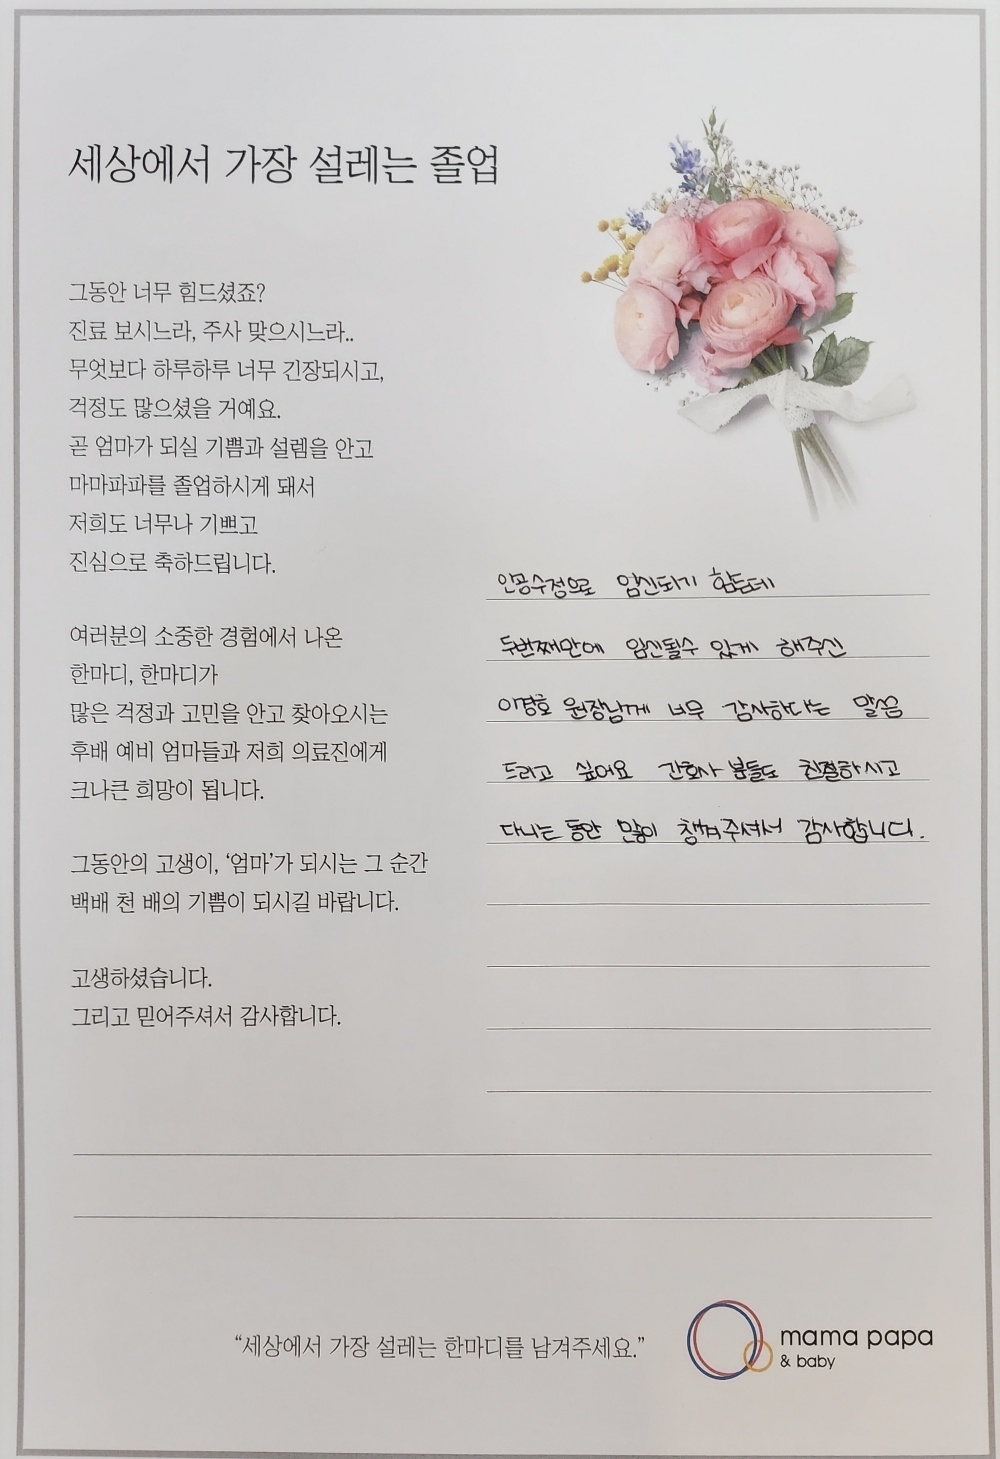 세상에서 가장 설레는 졸업
그동안 너무 힘드셨죠?
진료 보시느라, 주사 맞으시느라..
무엇보다 하루하루 너무 긴장되시고,
걱정도 많으셨을 거예요.
곧 엄마가 되실 기쁨과 설렘을 안고
마마파파를 졸업하시게 돼서
저희도 너무나 기쁘고
진심으로 축하드립니다.
여러분의 소중한 경험에서 나온
한마디, 한마디가
많은 걱정과 고민을 안고 찾아오시는
후배 예비 엄마들과 저희 의료진에게
크나큰 희망이 됩니다.
그동안의 고생이, ‘엄마’가 되시는 그 순간
백배 천 배의 기쁨이 되시길 바랍니다.
고생하셨습니다.
그리고 믿어주셔서 감사합니다.
인공수정으로 임신되기 힘든데
두번째만에 임신될수 있게 해주신
이경호 원장님께 너무 감사하다는 말씀
드리고 싶어요 간호사 분들도 친절하시고
다니는 동안 많이 챙겨주셔서 감사합니다.
“세상에서 가장 설레는 한마디를 남겨주세요.”
mama papa
& baby